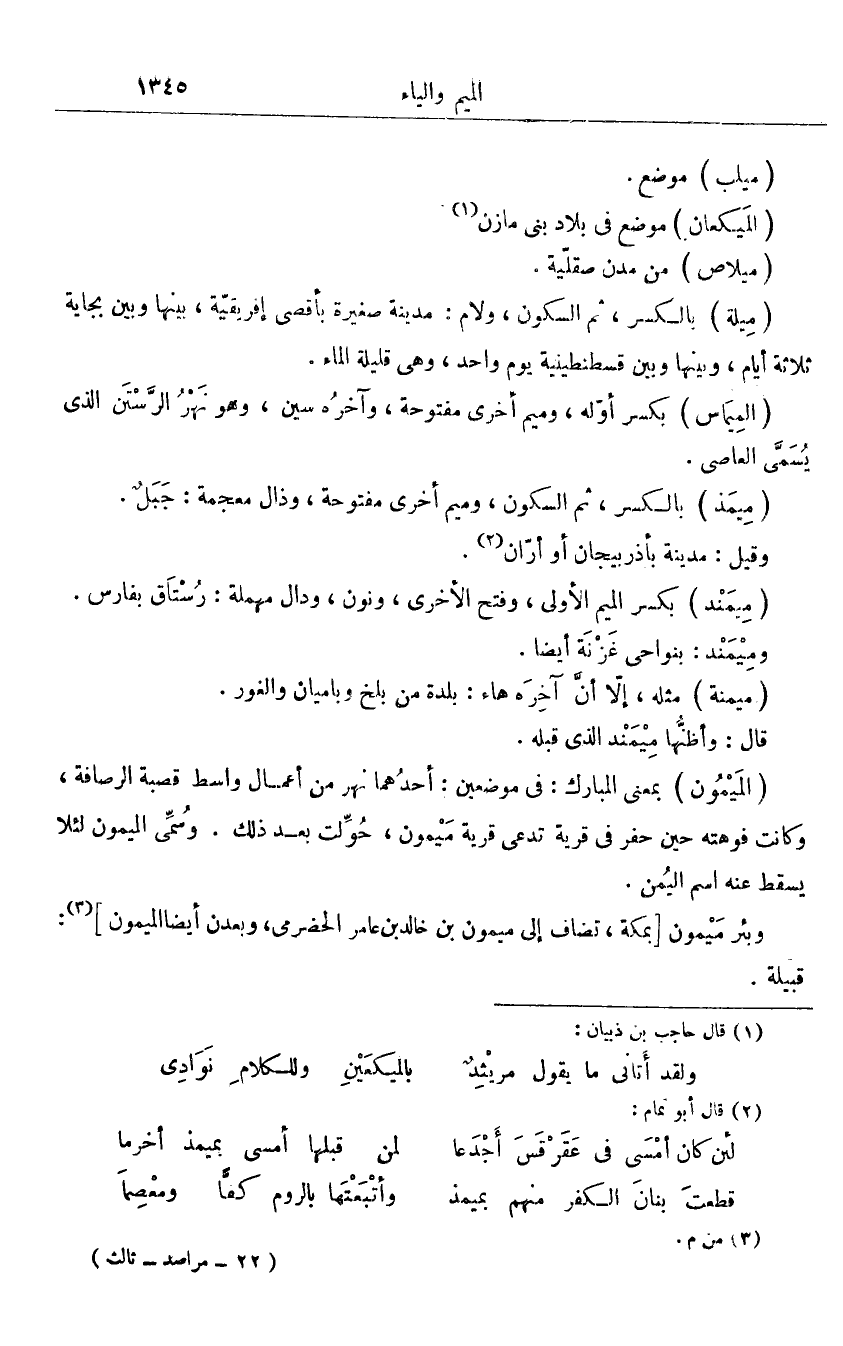 الميم والياء ١٣٤٥
( ميلب ) موضع .
( المَيكعان ) موضع فى بلاد بنى مازن(١)
( ميلاص ) من مدن صقلّية .
( مِيلة ) بالكسر ، ثم السكون ، ولام : مدينة صغيرة بأقصى إفريقيّة ، بينها وبين بجاية
ثلاثة أيام ، وبينها وبين قسطنطينية يوم واحد ، وهى قليلة الماء .
( المِيمَاس ) بكسر أوّله ، وميم أخرى مفتوحة ، وآخرُه سين ، وهو نَهْرُ الرَّسْتَن الذى
يُسَمَّى العاصى .
( مِيمَذ ) بالكسر ، ثم السكون ، وميم أخرى مفتوحة ، وذال معجمة : جَبَلٌ .
وقيل : مدينة بأذربيجان أو أرّان(٢) .
( مِيمَنْد ) بكسر الميم الأولى ، وفتح الأخرى ، ونون ، ودال مهملة : رُسْتَاق بفارس .
ومِيْمَنْد : بنواحى غَزْنَة أيضا .
( ميمنة ) مثله ، إلّا أنَّ آخِرَه هاء : بلدة من بلخ وباميان والغور .
قال : وأظنُّها مِيْمَنْد الذى قبله .
( المَيْمُون ) بمعنى المبارك : فى موضعين : أحدُهما نهر من أعمال واسط قصبة الرصافة ،
وكانت فوهته حين حفر فى قرية تدعى قرية مَيْمون ، حُوِّلت بعد ذلك . وسُمِّى الميمون لئلا
يسقط عنه اسم اليُمن .
وبئر مَيْمون [بمكة ، تضاف إلى ميمون بن خالد بن عامر الحضرمى، وبعدن أيضا الميمون ](٣):
قبيلة .
(١) قال حاجب بن ذبيان :
ولقد أَتانى ما يقول مريْثِدٌ بالميكعَيْنِ وللكلامِ نَوَادِى
(٢) قال أبو تمام :
لئن كان أمْسَى فى عَقَرْقَسَ أَجْدَعا لمن قبلها أمسى بميمذ أخرما
قطعتَ بنانَ الكفر منهم بميمذ وأتْبَعْتَها بالروم كفًّا ومعْصِمَا
(٣) من م .
( ٢٢ – مراصد – ثالث )